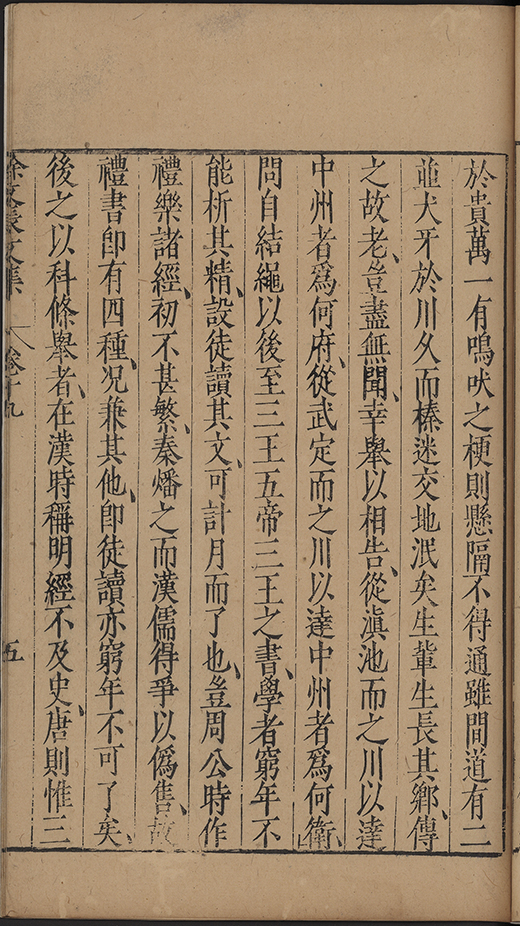 於貴萬一有鳴吠之梗則懸隔不得通雖間道有二
並犬牙於川久而榛迷交地泯矣生輩生長其鄉、傳
之故老、豈盡無聞、幸舉以相告、從滇池而之川以達
中州者爲何府、從武定而之川以達中州者爲何衛、
問自結繩以後至三王五帝三王之書、學者窮年不
能析其精、設徒讀其文、可計月而了也、豈周公時作
禮樂諸經、初不甚繁、秦燔之而漢儒得爭以僞售、故
禮書卽有四種、况兼其他、卽徒讀亦窮年不可了矣、
後之以科條舉者、在漢時稱明經不及史、唐則惟三
徐文長文集 卷十九 五